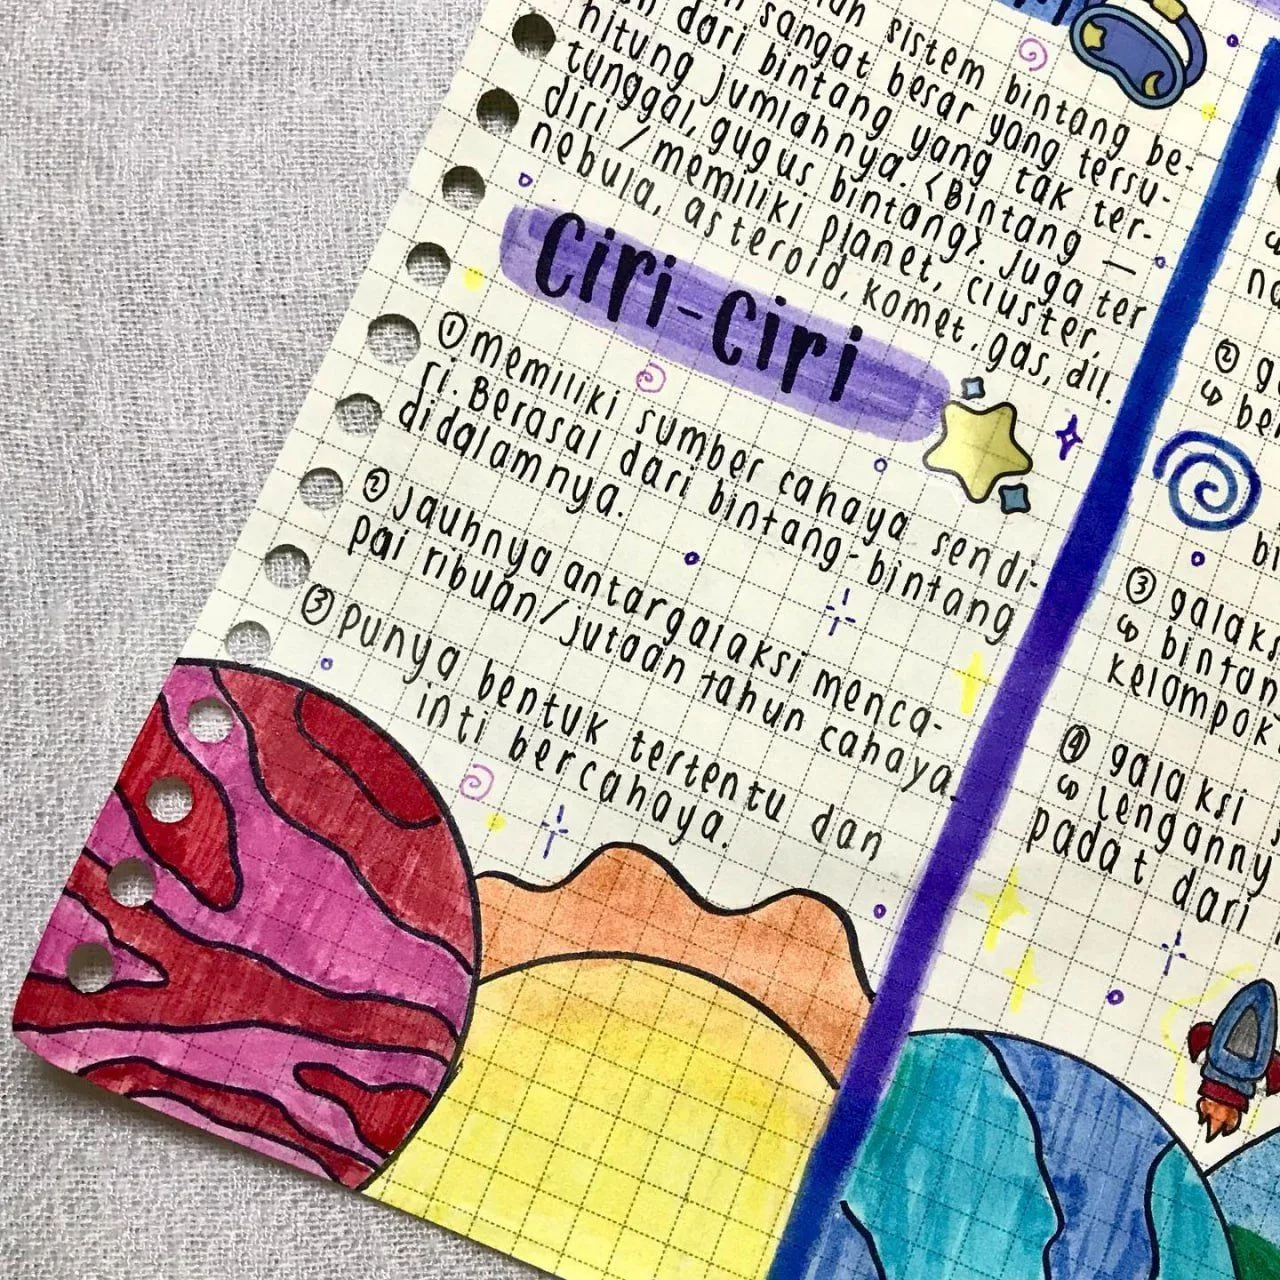 sistem bintang be-
sangat besar yang tersu-
dari bintang yang tak ter-
hitung jumlahnya. <Bintang —
tunggal, gugus bintang>. Juga ter
diri / memiliki planet, cluster,
nebula, asteroid, komet, gas, dll.
Ciri-Ciri
① memiliki sumber cahaya sendi-
ri. Berasal dari bintang-bintang
didalamnya.
② Jauhnya antargalaksi menca-
pai ribuan/jutaan tahun cahaya.
③ Punya bentuk tertentu dan
inti bercahaya.
②
↳
③
↳ bintan
kelompok
④ galaksi
↳ Lengann
padat dari